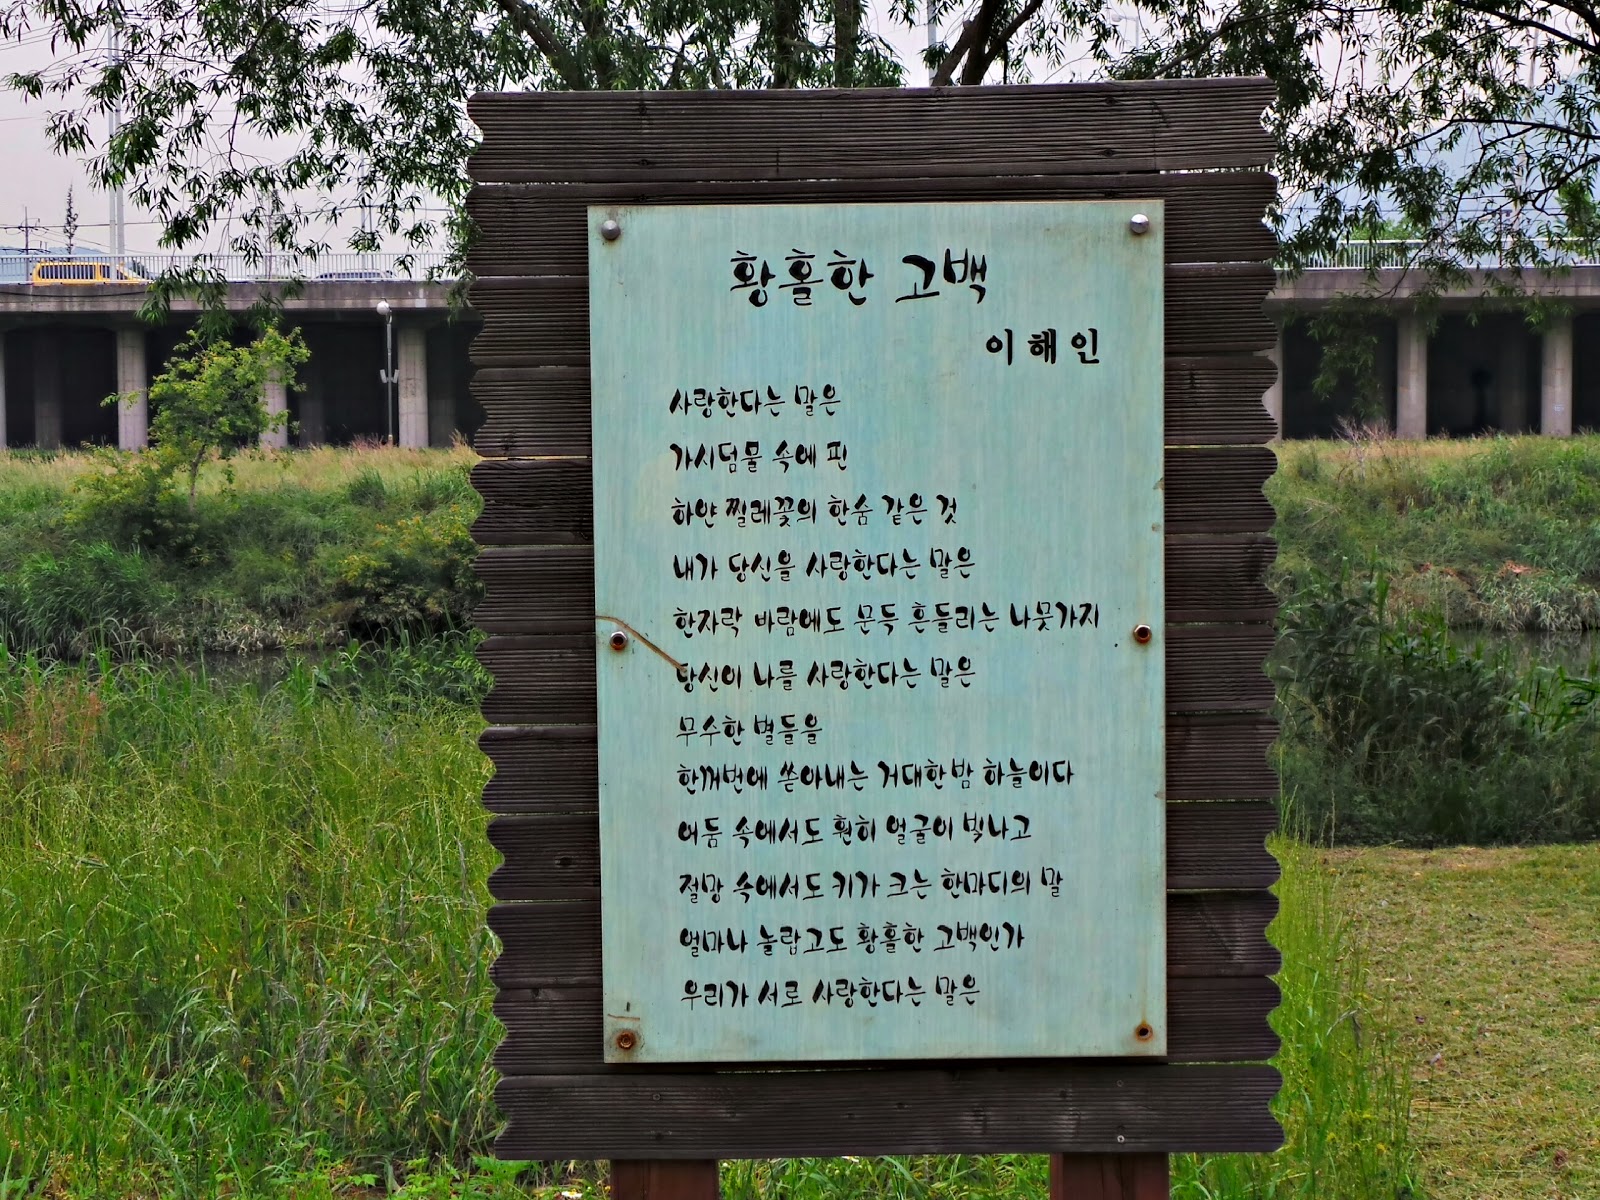 황홀한 고백
이해인
사랑한다는 말은
가시덤불 속에 핀
하얀 찔레꽃의 한숨 같은 것
내가 당신을 사랑한다는 말은
한자락 바람에도 문득 흔들리는 나뭇가지
당신이 나를 사랑한다는 말은
무수한 별들을
한꺼번에 쏟아내는 거대한밤 하늘이다
어둠 속에서도 훤히 얼굴이 빛나고
절망 속에서도 키가 크는 한마디의 말
얼마나 놀랍고도 황홀한 고백인가
우리가 서로 사랑한다는 말은